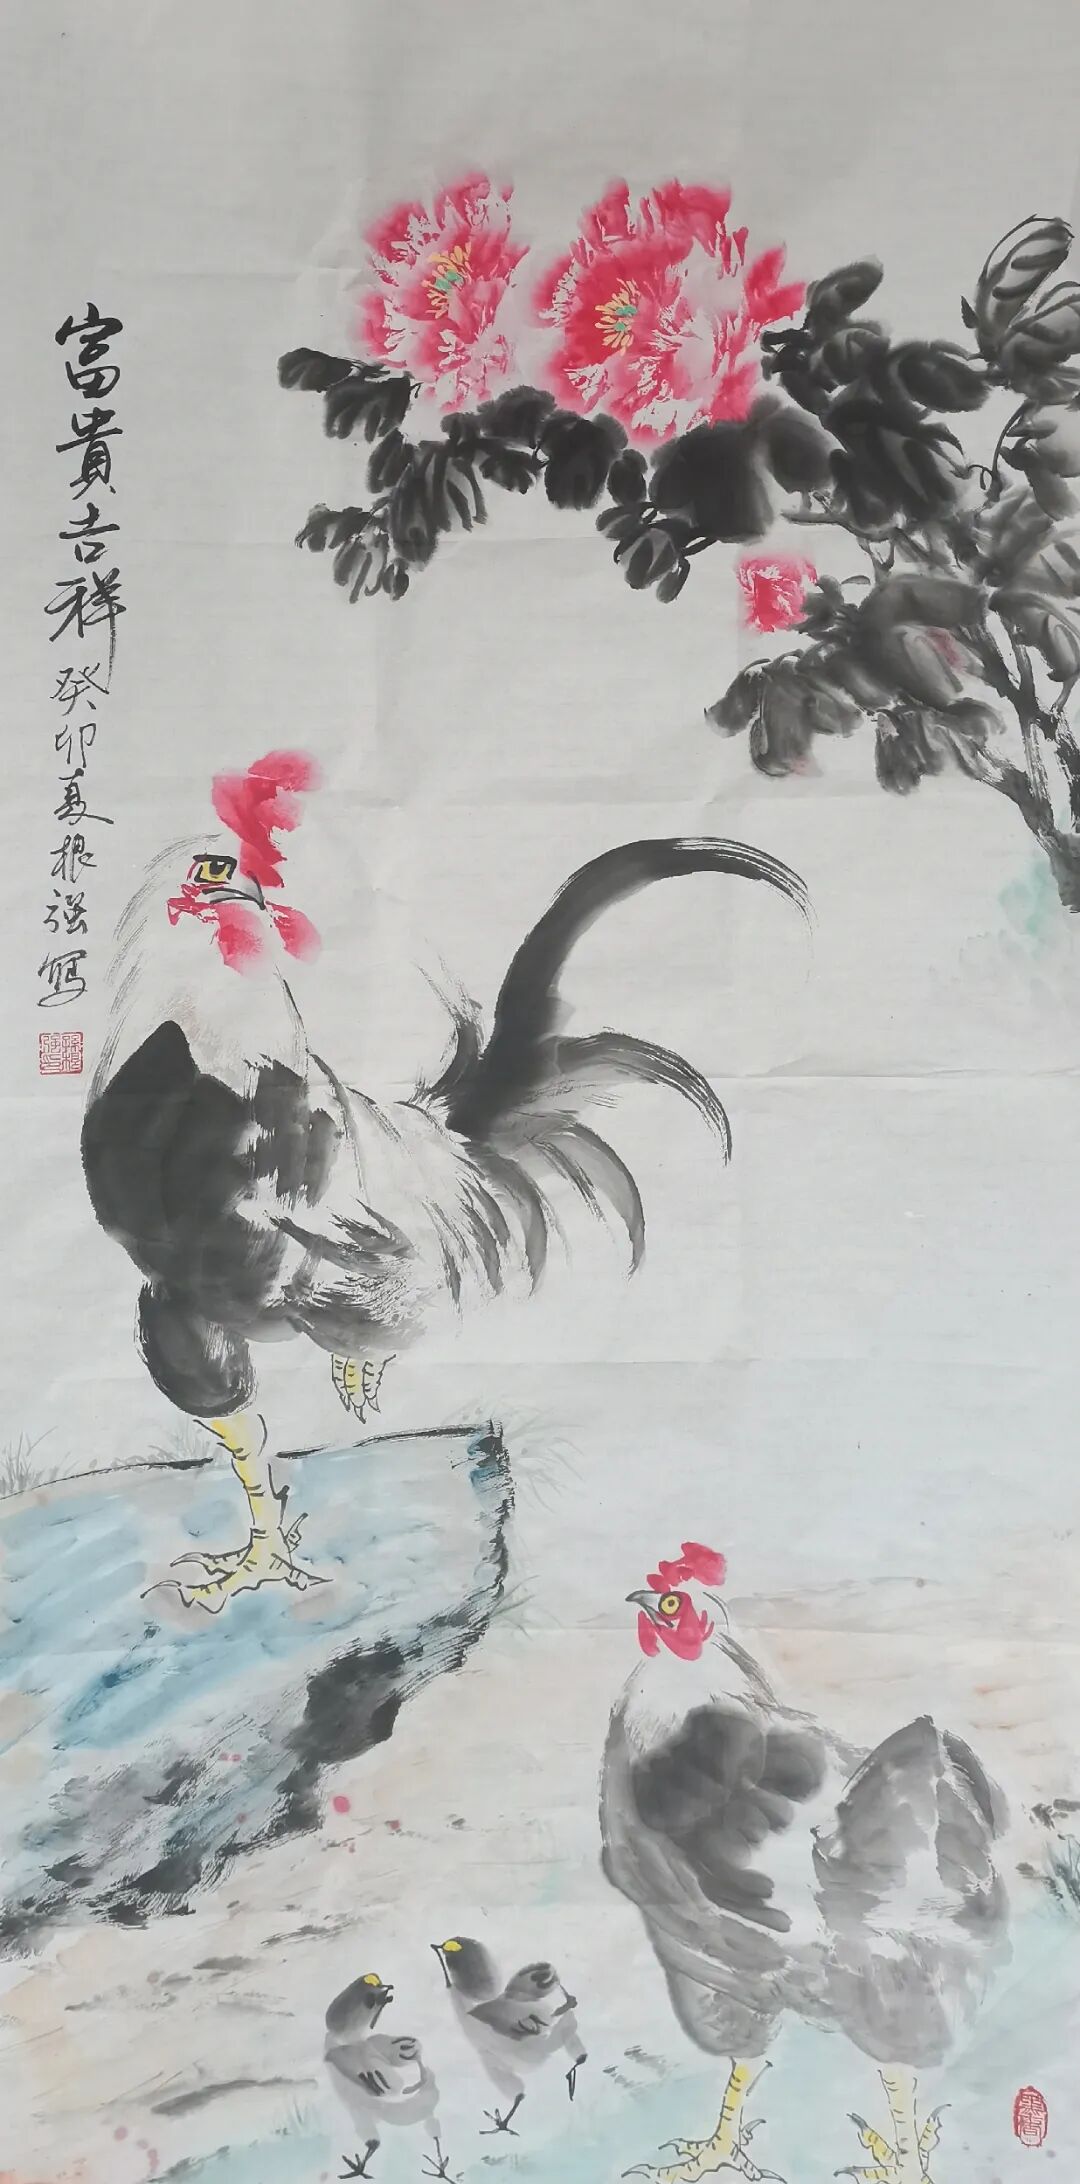 富貴吉祥
癸卯夏根强寫